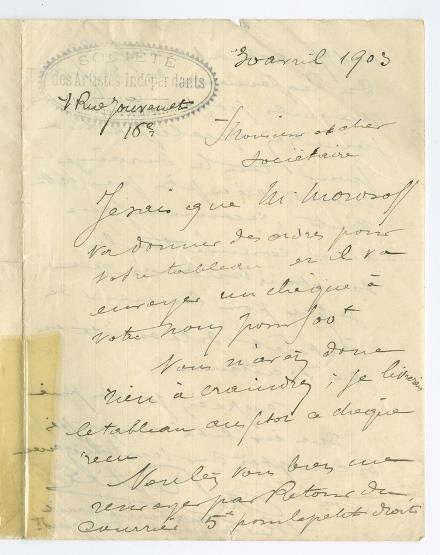 30 avril 1903
SOCIÉTÉ
des Artistes Indépendants
1 Rue Jouvenet
16e
Monsieur et cher
Sociétaire
Je sais que M. Morosoff
va donner des ordres pour
votre tableau et il va
envoyer un chèque à
votre nom pour
Vous n'avez donc
rien à craindre ; je livrerai
le tableau aussitôt ce chèque
recu
Veuillez vous bien me
renvoyer par Retour du
Courrier 5f pour le petit droit